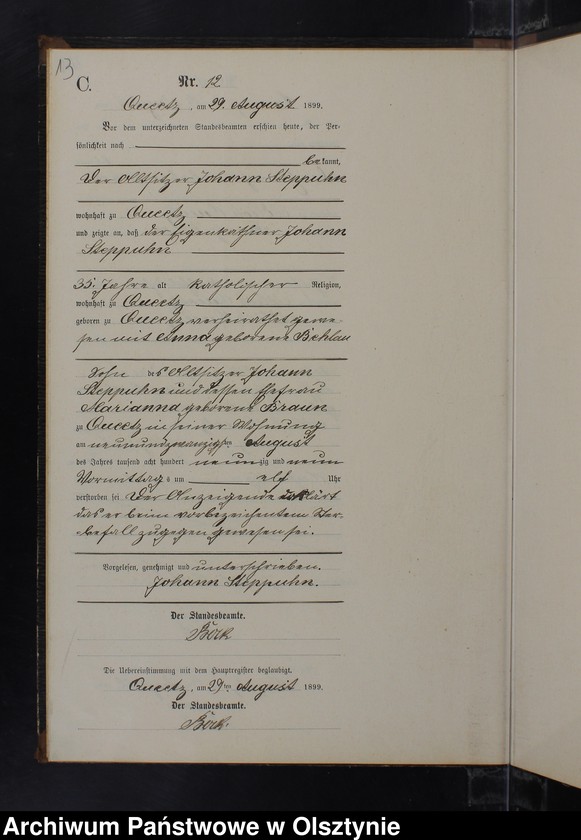 13
C.
Nr. 12
Queetz, am 29. August 1899.
Vor dem unterzeichneten Standesbeamten erschien heute, der Per-
sönlichkeit nach
bekannt,
der Altsitzer Johann Steppuhn
wohnhaft zu Queetz
und zeigte an, daß der Eigenkäthner Johann
Steppuhn
35. Jahre alt katholischer Religion,
wohnhaft zu Queetz
geboren zu Queetz verheirathet gewe-
sen mit Anna geborene
Sohn des Altsitzer Johann
Steppuhn und dessen Ehefrau
Marianna geborene Braun
zu Queetz in seiner Wohnung
am neunundzwanzigsten August
des Jahres tausend acht hundert neunzig und neun
Vormittags um elf Uhr
verstorben sei. Der Anzeigende erklärt
das er beim vorbezeichentem Ster-
befall zugegen gewesen sei.
Vorgelesen, genehmigt und unterschrieben.
Johann Steppuhn.
Der Standesbeamte.
Böck
Die Uebereinstimmung mit dem Hauptregister beglaubigt.
Queetz, am 29ten August 1899.
Der Standesbeamte.
Böck.
Archiwum Państwowe w Olsztynie